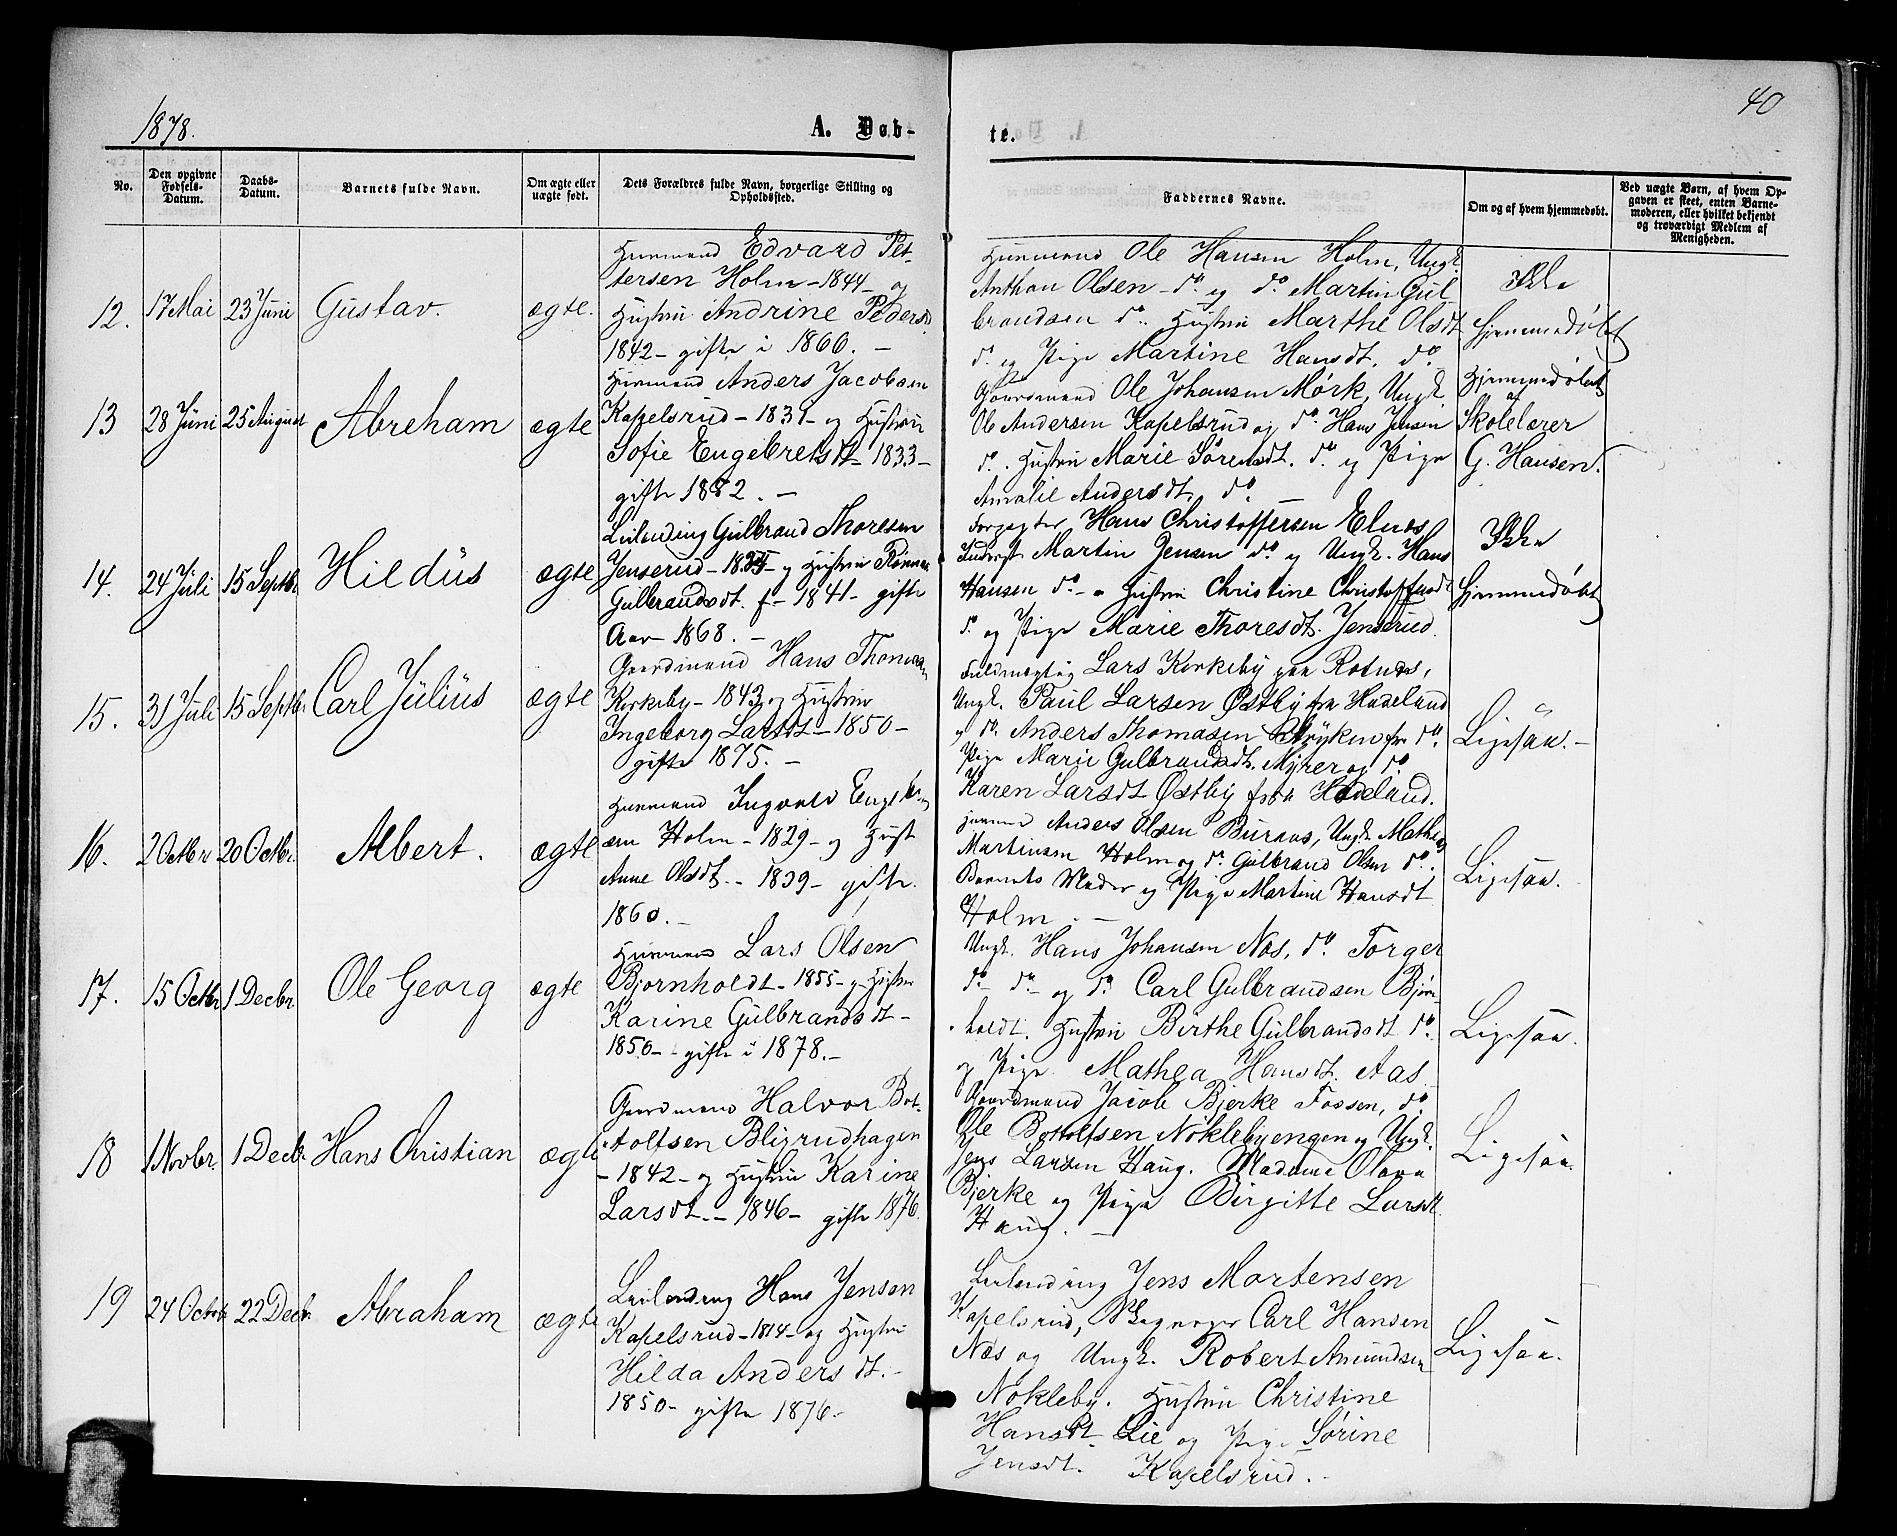 1878.
A. Døb-
te.
40
No.
Den opgivne Fødsels-Datum.
Daabs-Datum.
Barnets fulde Navn.
Om ægte eller uægte født.
Dets Forældres fulde Navn, borgerlige Stilling og Opholdssted.
Faddernes Navne.
Om og af hvem hjemmedøbt.
Ved uægte Børn, af hvem Opgaven er skeet, enten Barnemoderen, eller hvilket bekjendt og troværdigt Medlem af Menigheden.
12. 17 Mai 23 Juni Gustav. ægte.
Huusmand Edvard Pet-
tersen Holm - 1844 - og
Hustru Andrine Pedersd.
1842 - gifte i 1860. -
Huusmand Ole Hansen Holm, Ungk.
Anthon Olsen - do. og do. Martin Gul-
brandsen do.. Hustru Marthe Olsdt
do. og Pige Martine Hansdt. do.
Ikke
hjemmedøbt
13 28 Juni 25 August Abreham ægte
Huusmand Anders Jacobsen
Kapelsrud - 1831 - og Hustru
Sofie Engebretsdt - 1833 -
gifte 1852. -
Gaardmand Ole Johansen Mørk, Ungk.
Ole Andersen Kapelsrud og do. Hans Jensen
do.. Hustru Marie Sørensdt. do. og Pige
Amalie Andersdt. do.
Hjemmedøbt
af
Skolelærer
G. Hansen.
14. 24 Juli 15 Septbr Hildus ægte
Leilending Gulbrand Thoresen
Jenserud - og Hustru
Gulbrandsdt. f - 1841 - gifte
Aar 1868. -
Forpagter Hans Christoffersen Elnes
Martin Jensen do. og Ungk. Hans
Hansen do. - Hustru Christine Christoffersdt
do. og Pige Marie Thoresdt. Jenserud.
Ikke
hjemmedøbt
15. 31 Juli 15 Septbr Carl Julius ægte
Gaardmand Hans Thomasen
Kirkeby - 1843 og Hustru
Ingeborg Larsdt - 1850 -
gifte 1875. -
Fuldmægtig Lars Kirkeby paa Rotnes,
Ungk. Paul Larsen Østby fra Hadeland
og do. Anders Thomasen Stryken fra do.
Pige Marie Gulbrandsdt. Myrer og do.
Karen Larsdt Østby fra Hadeland.
Ligesaa. -
16. 2 Octbr 20 Octbr. Albert. ægte
Huusmand Ingvald Engebret-
sen Holm - 1829 - og Hustr
Anne Olsdt. - 1839 - gifte.
1860. -
Huusmand Anders Olsen Buraas, Ungk. Mathias
Martinsen Holm og do. Gulbrand Olsen do.
Barnets Moder og Pige Martine Hansdt
Holm. -
Ligesaa.
17. 15 Octbr 1 Decbr Ole Georg ægte
Huusmand Lars Olsen
Bjørnholdt - 1855 - og Hustru
Karine Gulbrandsdt -
1850 - gifte i 1878. -
Ungk. Hans Johansen Nes, do. Torger
do - do - og do. Carl Gulbrandsen Bjørn-
holdt. Hustru Birthe Gulbrandsdt do.
og Pige Mathea Hansdt. Aas
Ligesaa.
18 1 Novbr. 1 Decbr. Hans Christian ægte
Gaardmand Halvor Bot-
tolfsen Bliksrudhagen
- 1842 - og Hustru Karine
Larsdt. - 1846 - gifte 1876.
Gaardmand Jacob Bjerke Fossen, do.
Ole Bottolfsen Nøklebyengen og Ungk.
Jens Larsen Haug. Madame Olava
Bjerke og Pige Birgitte Larsdt.
Haug. -
Ligesaa.
19 24 Octbr 22 Decbr. Abraham ægte
Leilending Hans Jensen
Kapelsrud - 1814 - og Hustru
Hilda Andersdt. -
1850 - gifte 1876 -
Leilending Jens Mortensen
Kapelsrud, Carl Hansen
Næs og Ungk. Robert Amundsen
Nøkleby. Hustru Christine
Hansdt. Lie og Pige Sørine
Jensdt. Kapelsrud. -
Ligesaa.